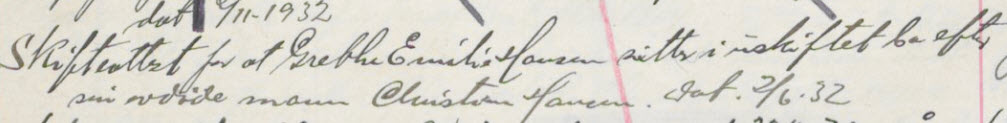 dat 9/11-1932
Skifteattest for at Grethe Emilie Hansen sitter i uskiftet bo efter
sin avdøde mann Christian Hansen. dat. 2/6.32